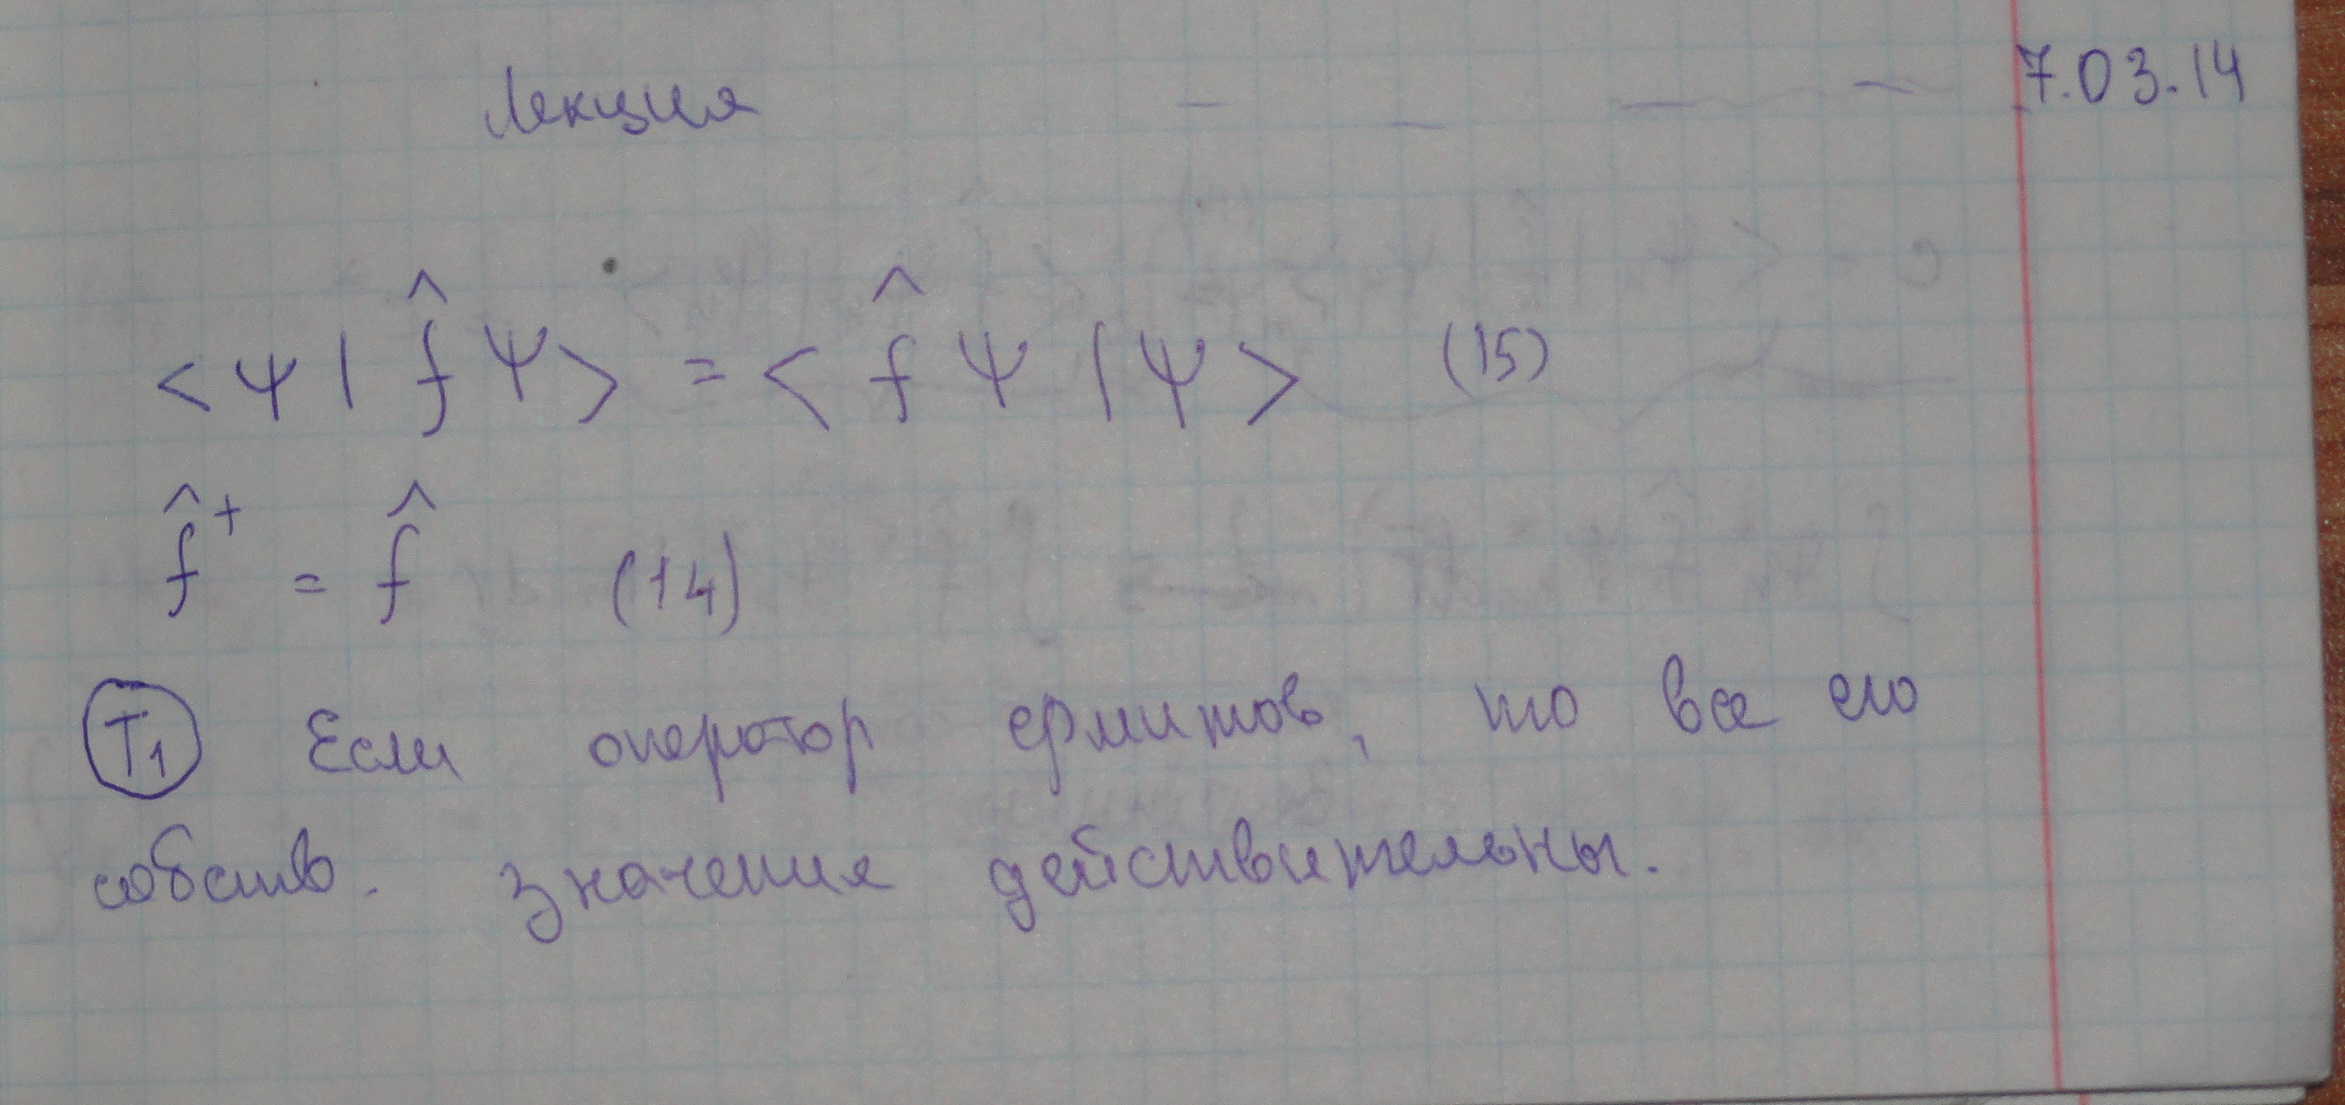 Лекция 7.03.14
<ψ | f̂ ψ> = < f̂ ψ | ψ > (15)
f̂⁺ = f̂ (14)
T₁ Если оператор ермитов, то все его
собств. значения действительны.